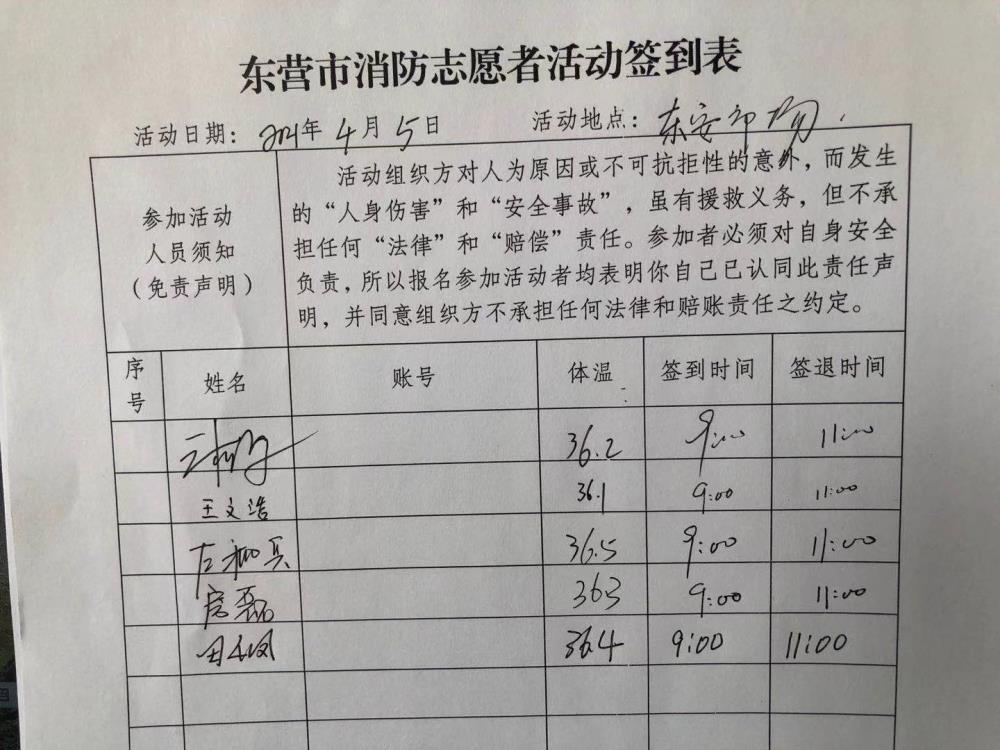 东营市消防志愿者活动签到表
活动日期：2021年4月5日 活动地点：东安
参加活动
人员须知
（免责声明）
活动组织方对人为原因或不可抗拒性的意外，而发生
的“人身伤害”和“安全事故”，虽有援救义务，但不承
担任何“法律”和“赔偿”责任。参加者必须对自身安全
负责，所以报名参加活动者均表明你自己已认同此责任声
明，并同意组织方不承担任何法律和赔账责任之约定。
序号 姓名 账号 体温 签到时间 签退时间
36.2 9:00 11:00
王文浩 36.1 9:00 11:00
36.5 9:00 11:00
磊 363 9:00 11:00
田 36.4 9:00 11:00